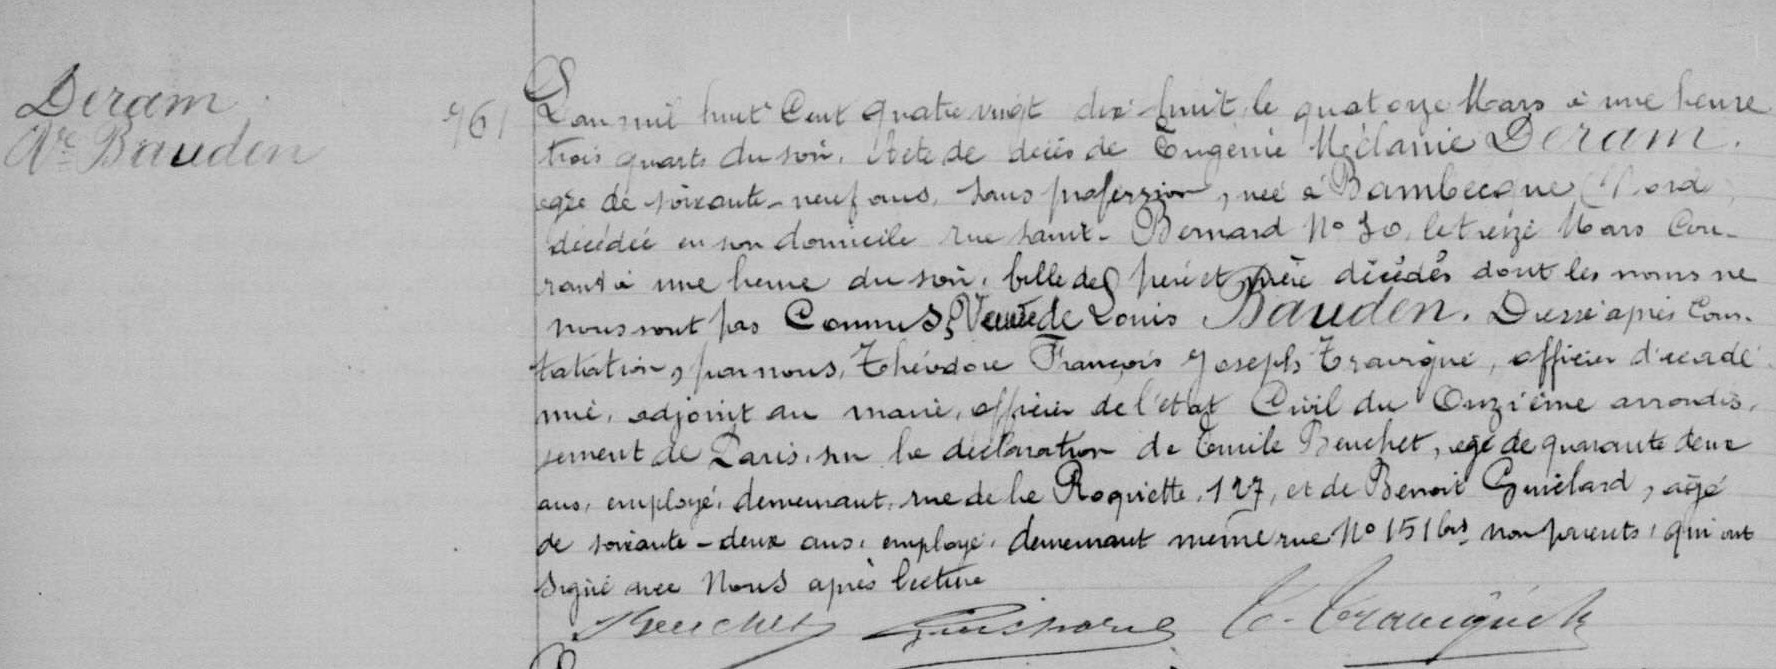 Deram
Vve Bauden
961
L'an mil huit Cent quatre vingt dix huit, le quatorze Mars à une heure
trois quarts du soir. Acte de décès de Eugénie Mélanie Deram.
agée de soixante-neuf ans, sans profession, née à Bambecque (Nord)
décédée en son domicile rue Saint-Bernard No 30, le treize Mars Cou-
rant à une heure du soir, fille de père et mère décédés dont les noms ne
nous sont pas Connus, Veuve de Louis Bauden. Dressé après Cons-
tatation, par nous, Théodore François Joseph, officier d'acadé
mie, adjoint au maire, officier de l'état Civil du Onzième arrondis-
sement de Paris, sur la déclaration de Emile Beuchet, agé de quarante deux
ans, employé, demeurant, rue de la Roquette, 127, et de Benoit, agé
de soixante-deux ans, employé, demeurant même rue No 151 bis non parents, qui ont
signé avec Nous après lecture
Beuchet